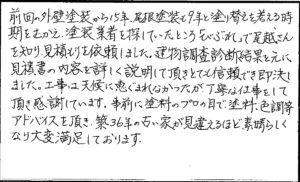 前回の外壁塗装から15年、屋根塗装と9年と塗り替えを考える時
期をむかえ、塗装業者を探していたところをいぶれしで尾越さん
を知り見積りを依頼しました。建物調査診断結果を元に
見積書の内容を詳しく説明して頂きとても信頼でき即決し
ました。工事は天候に恵まれなかったが丁寧な仕事をして
頂き感謝しています。事前に塗料のプロの目で塗料、色調等
アドバイスを頂き、築36年の古い家が見違えるほど素晴らしく
なり大変満足しております。